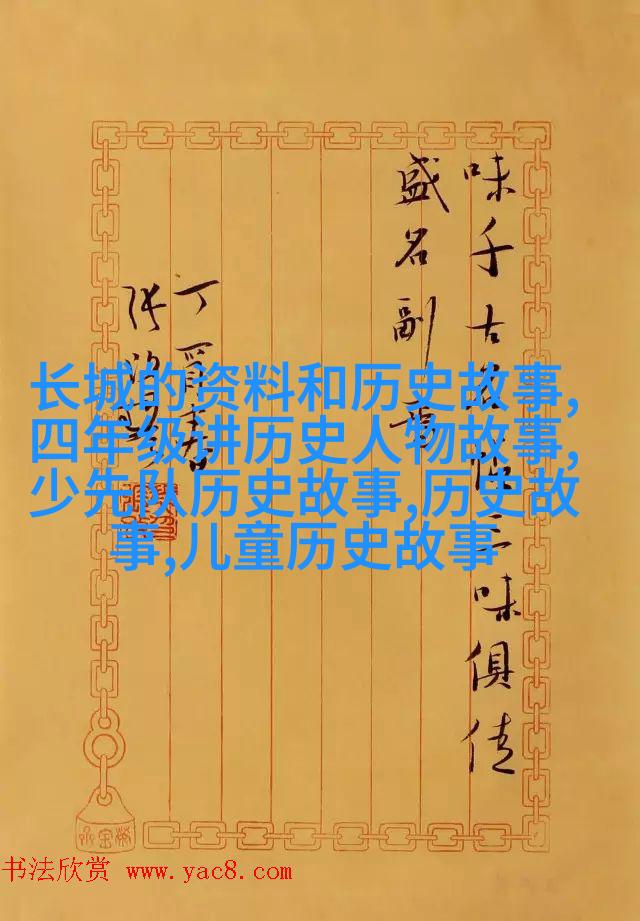 长城的资料和历史故事,
四年级讲历史人物故事,
少先队历史故事,历史故
事,儿童历史故事
味千古名三味俱佳
盛名副
丁酉春
书法欣赏 www.yac8.com